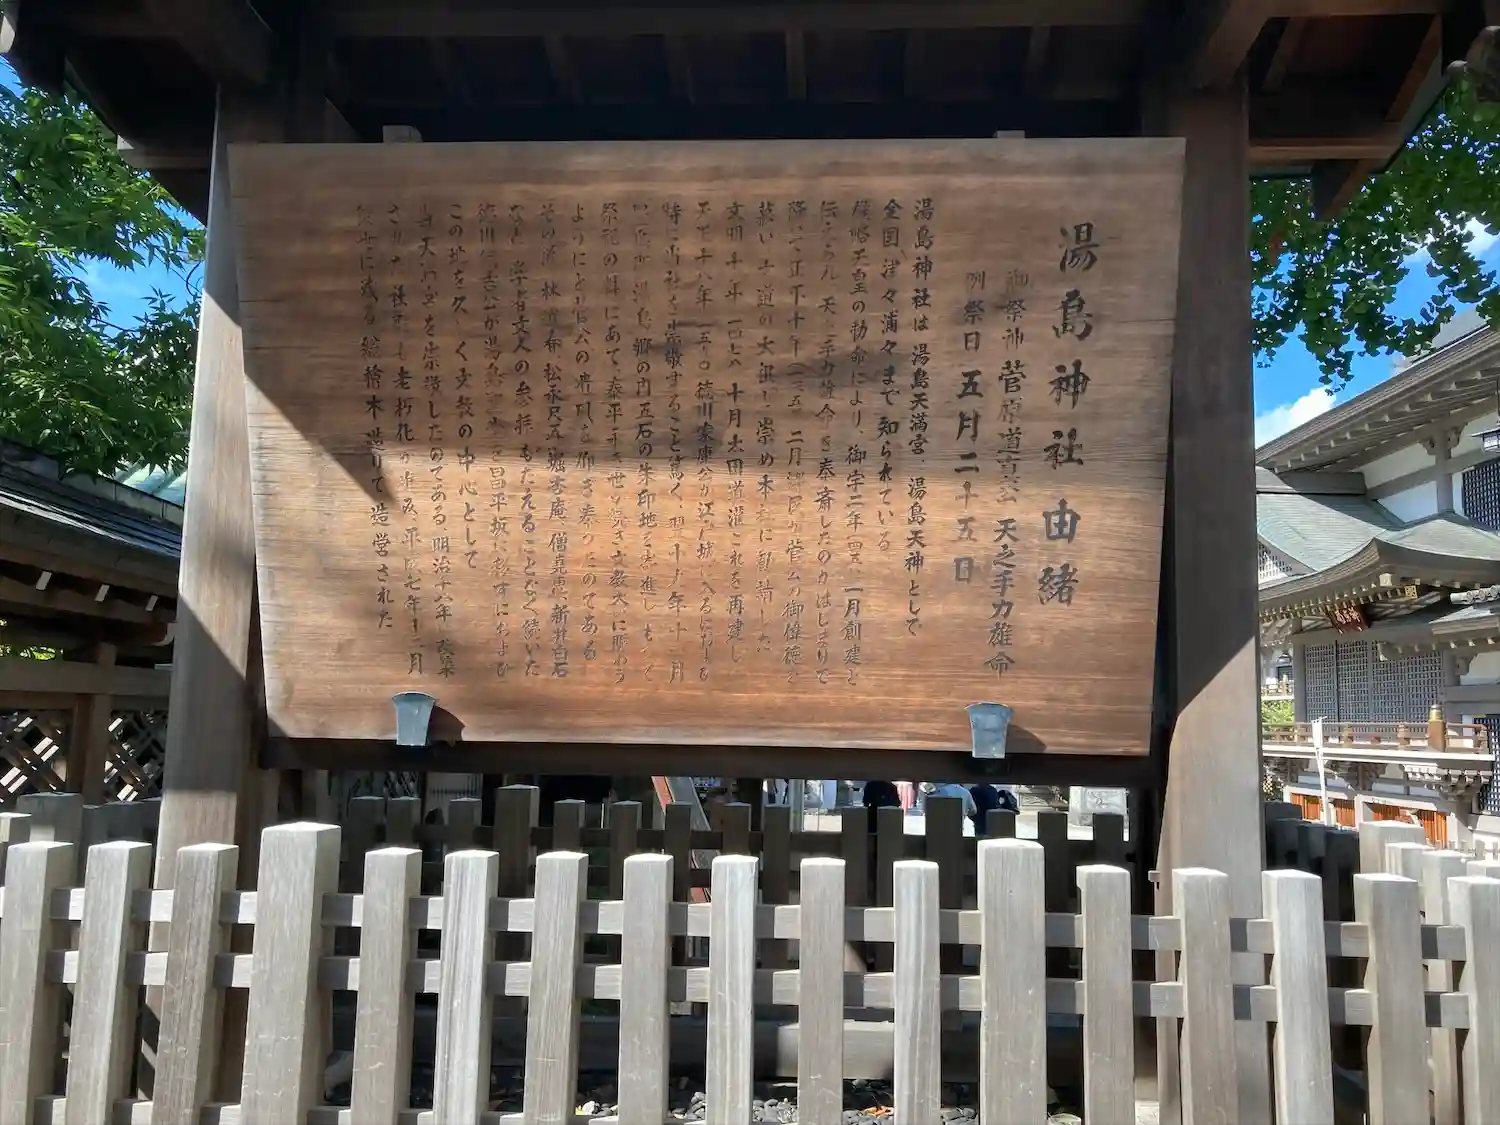 湯島神社由緒
御祭神 菅原道真公 天之手力雄命
例祭日 五月二十五日
湯島神社は湯島天満宮、湯島天神として
全国津々浦々まで知られている
雄略天皇の勅命により、御宇二年一月創建と
伝えられ 天之手力雄命を奉斎したのがはじまりで
降って正平十年 二月郷民が菅公の御偉徳を
慕い 文道の大祖と崇め本社に勧請した
文明十年 十月太田道灌これを再建し
天正十八年 徳川家康公が江戸城に入るにおよび
特に当社を崇敬すること篤く、翌十九年十一月
湯島郷の内五石の朱印地を寄進し もって
祭祀の料にあて、泰平 世が続き文教大いに賑わう
ようにと菅公の 風を仰ぎ奉ったのである
その後 林道春 松永尺五 堀杏庵 僧堯恵 新井白石
など 学者文人の参拝もたえることなく続いた
徳川 公が湯島聖堂を昌平坂に移すにおよび
この地を久しく文教の中心として
天 を崇 したのである 明治十八年 改築
された社殿も老朽化が進み 平成七年十二月
後世に残る総檜木造りで造営された